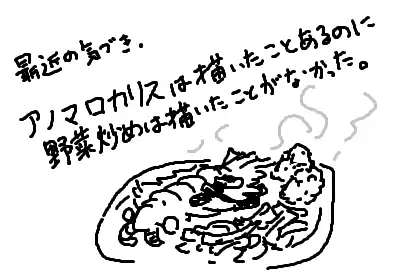 最近の気づき.
アノマロカリスは描いたことあるのに
野菜炒めは描いたことがなかった。